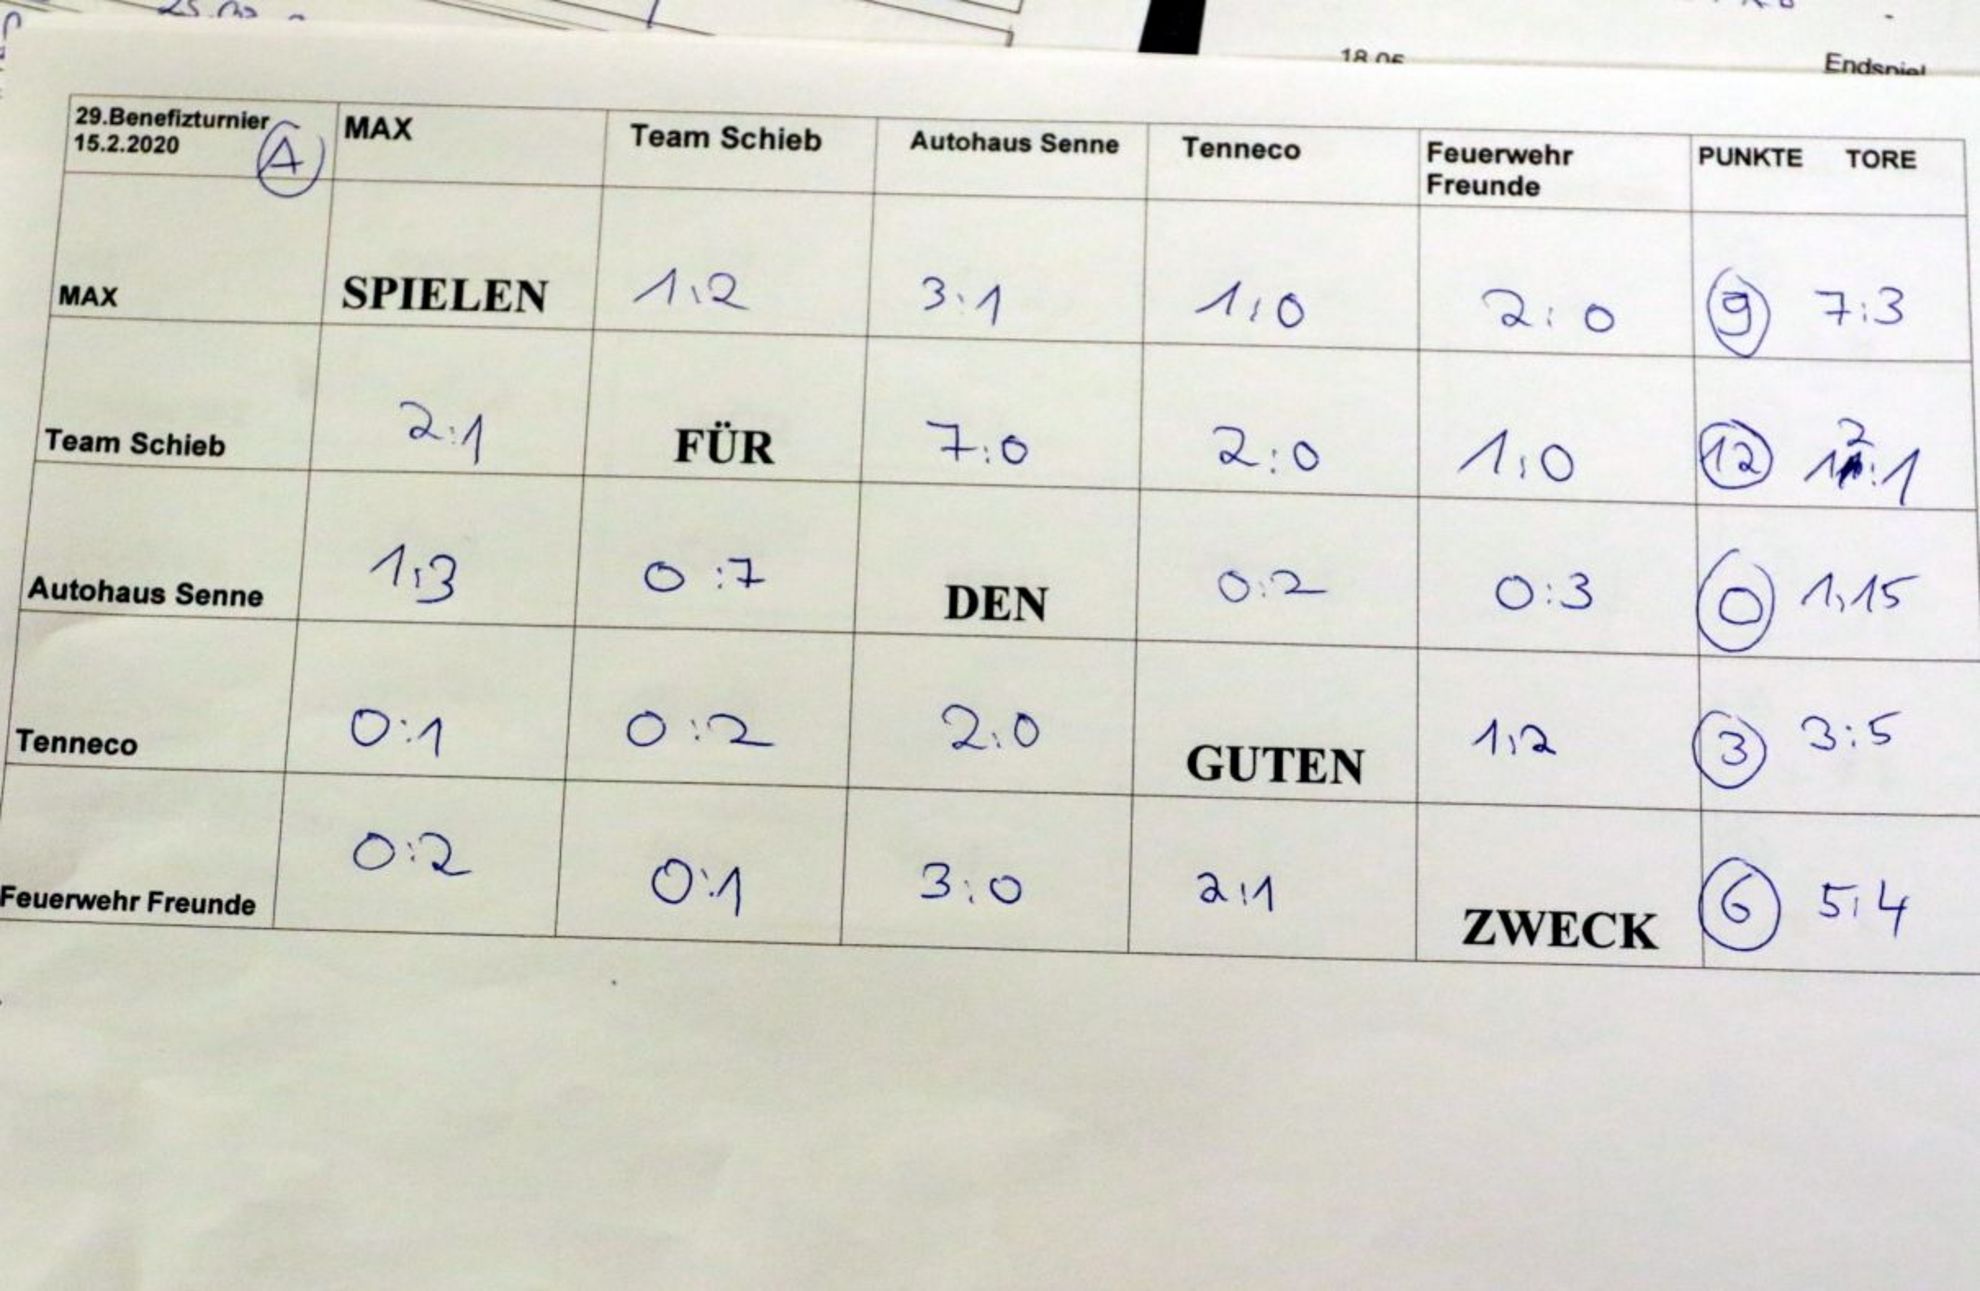 18.05
Endspiel
29.Benefizturnier MAX Team Schieb Autohaus Senne Tenneco Feuerwehr PUNKTE TORE
15.2.2020 A Freunde
MAX SPIELEN 1:2 3:1 1:0 2:0 9 7:3
Team Schieb 2:1 FÜR 7:0 2:0 1:0 12 12:1
Autohaus Senne 1:3 0:7 DEN 0:2 0:3 0 1:15
Tenneco 0:1 0:2 2:0 GUTEN 1:2 3 3:5
Feuerwehr Freunde 0:2 0:1 3:0 2:1 ZWECK 6 5:4